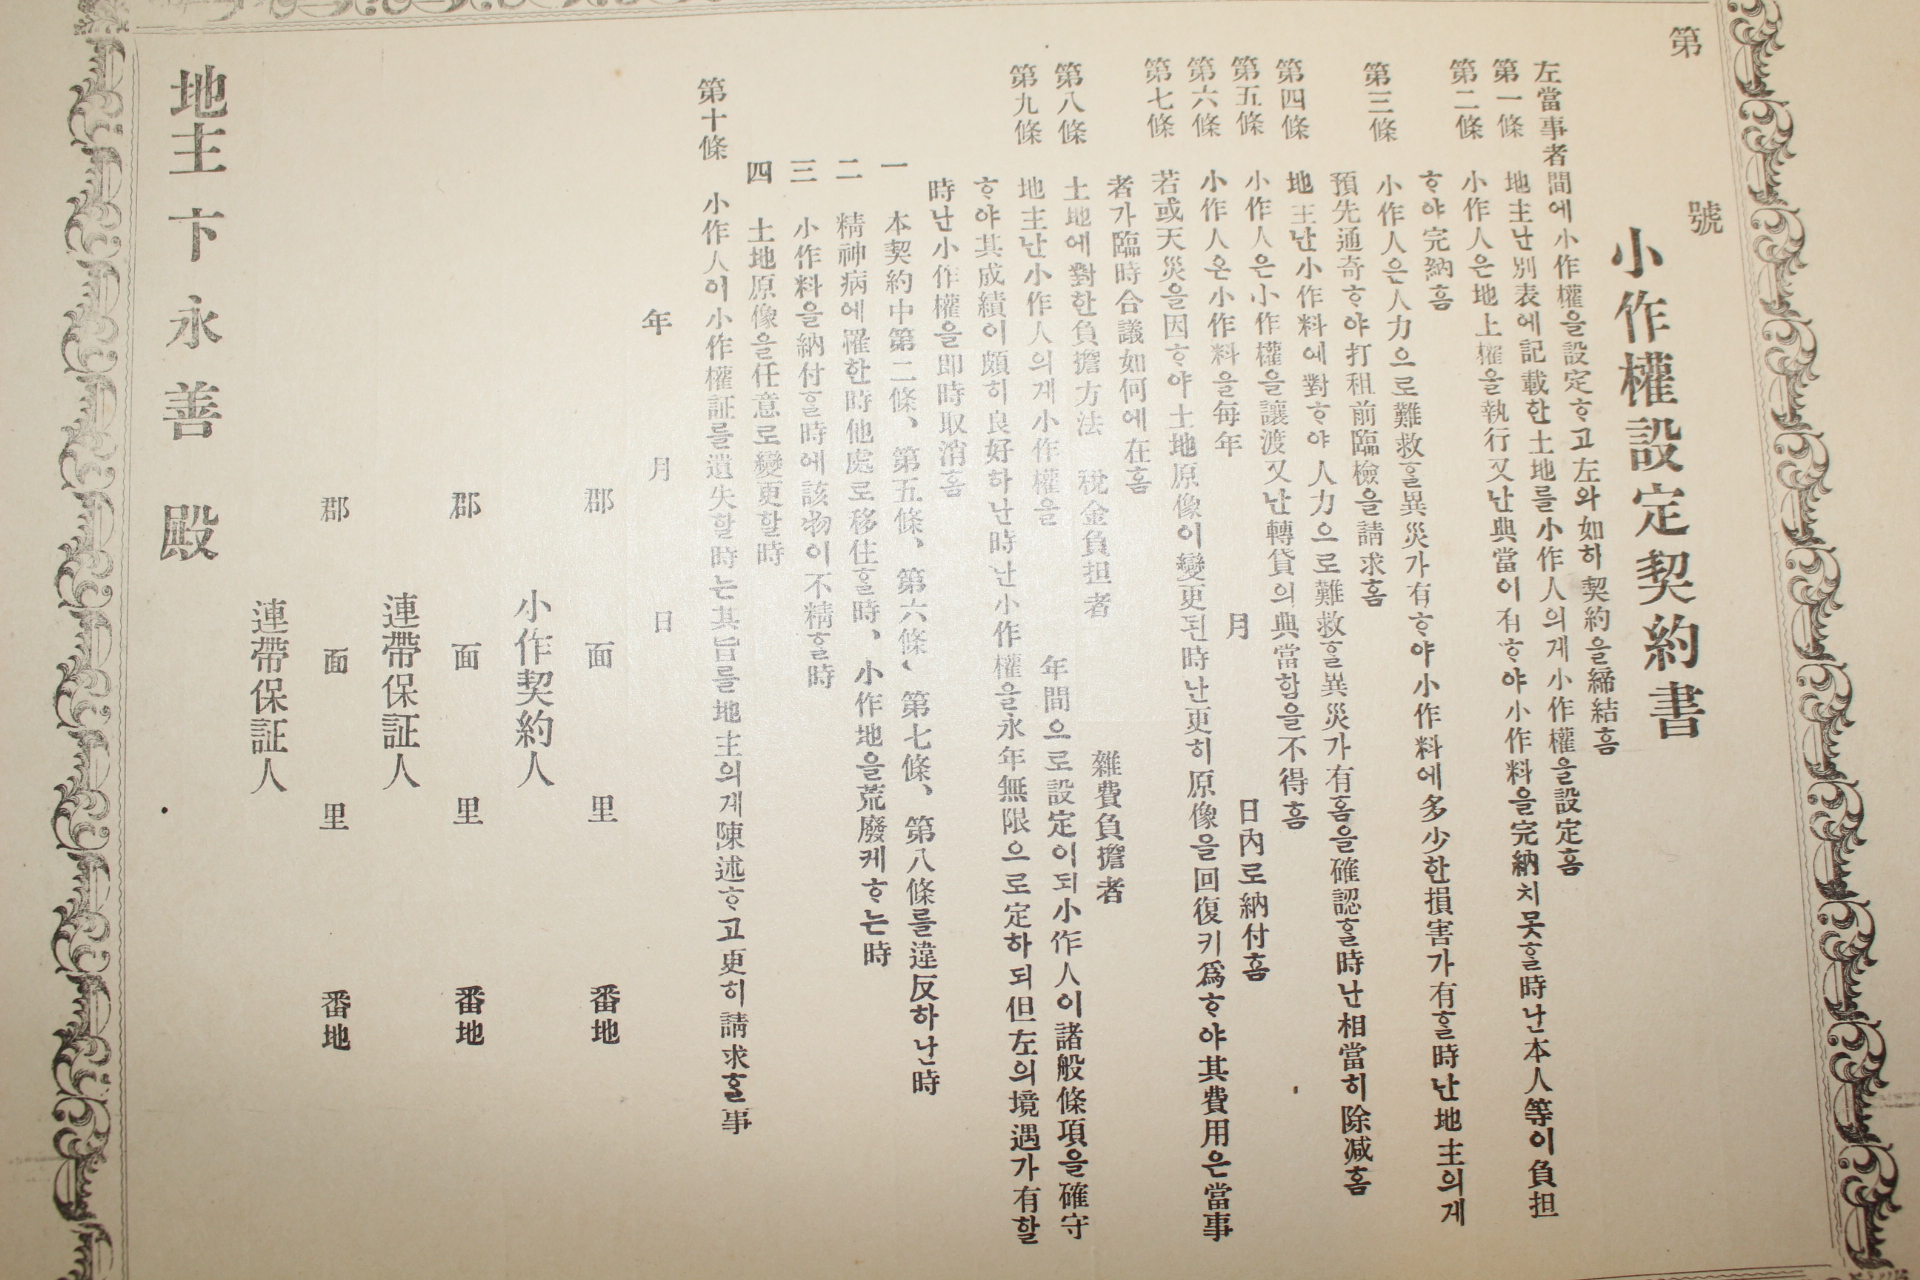 第　號
小作權設定契約書
左當事者間에小作權을設定ᄒᆞ고左와如히契約을締結홈
第一條　地主난別表에記載한土地를小作人의게小作權을設定홈
第二條　小作人은地上權을執行又난典當이有ᄒᆞ야小作料을完納치못ᄒᆞᆯ時난本人等이負担
ᄒᆞ야完納홈
第三條　小作人은人力으로難救ᄒᆞᆯ異災가有ᄒᆞ야小作料에多少한損害가有ᄒᆞᆯ時난地主의게
預先通奇ᄒᆞ야打租前臨檢을請求홈
第四條　地主난小作料에對ᄒᆞ야人力으로難救ᄒᆞᆯ異災가有홈을確認ᄒᆞᆯ時난相當히除减홈
第五條　小作人은小作權을讓渡又난轉貸의典當함을不得홈
第六條　小作人은小作料을每年　月　日內로納付홈
第七條　若或天災을因ᄒᆞ야土地原像이變更된時난更히原像을回復키爲ᄒᆞ야其費用은當事
者가臨時合議如何에在홈
第八條　土地에對한負擔方法　稅金負担者　雜費負擔者
第九條　地主난小作人의게小作權을　年間으로設定이되小作人이諸般條項을確守
ᄒᆞ야其成績이頗히良好하난時난小作權을永年無限으로定하되但左의境遇가有할
時난小作權을即時取消홈
一　本契約中第二條、第五條、第六條、第七條、第八條를違反하난時
二　精神病에罹한時他處로移住ᄒᆞᆯ時、小作地을荒廢케ᄒᆞ는時
三　小作料을納付ᄒᆞᆯ時에該物이不精ᄒᆞᆯ時
四　土地原像을任意로變更할時
第十條　小作人이小作權証를遺失할時는其旨를地主의게陳述ᄒᆞ고更히請求ᄒᆞᆯ事
年　月　日
郡　面　里　番地
小作契約人
郡　面　里　番地
連帶保証人
郡　面　里　番地
連帶保証人
地主　卞永善　殿